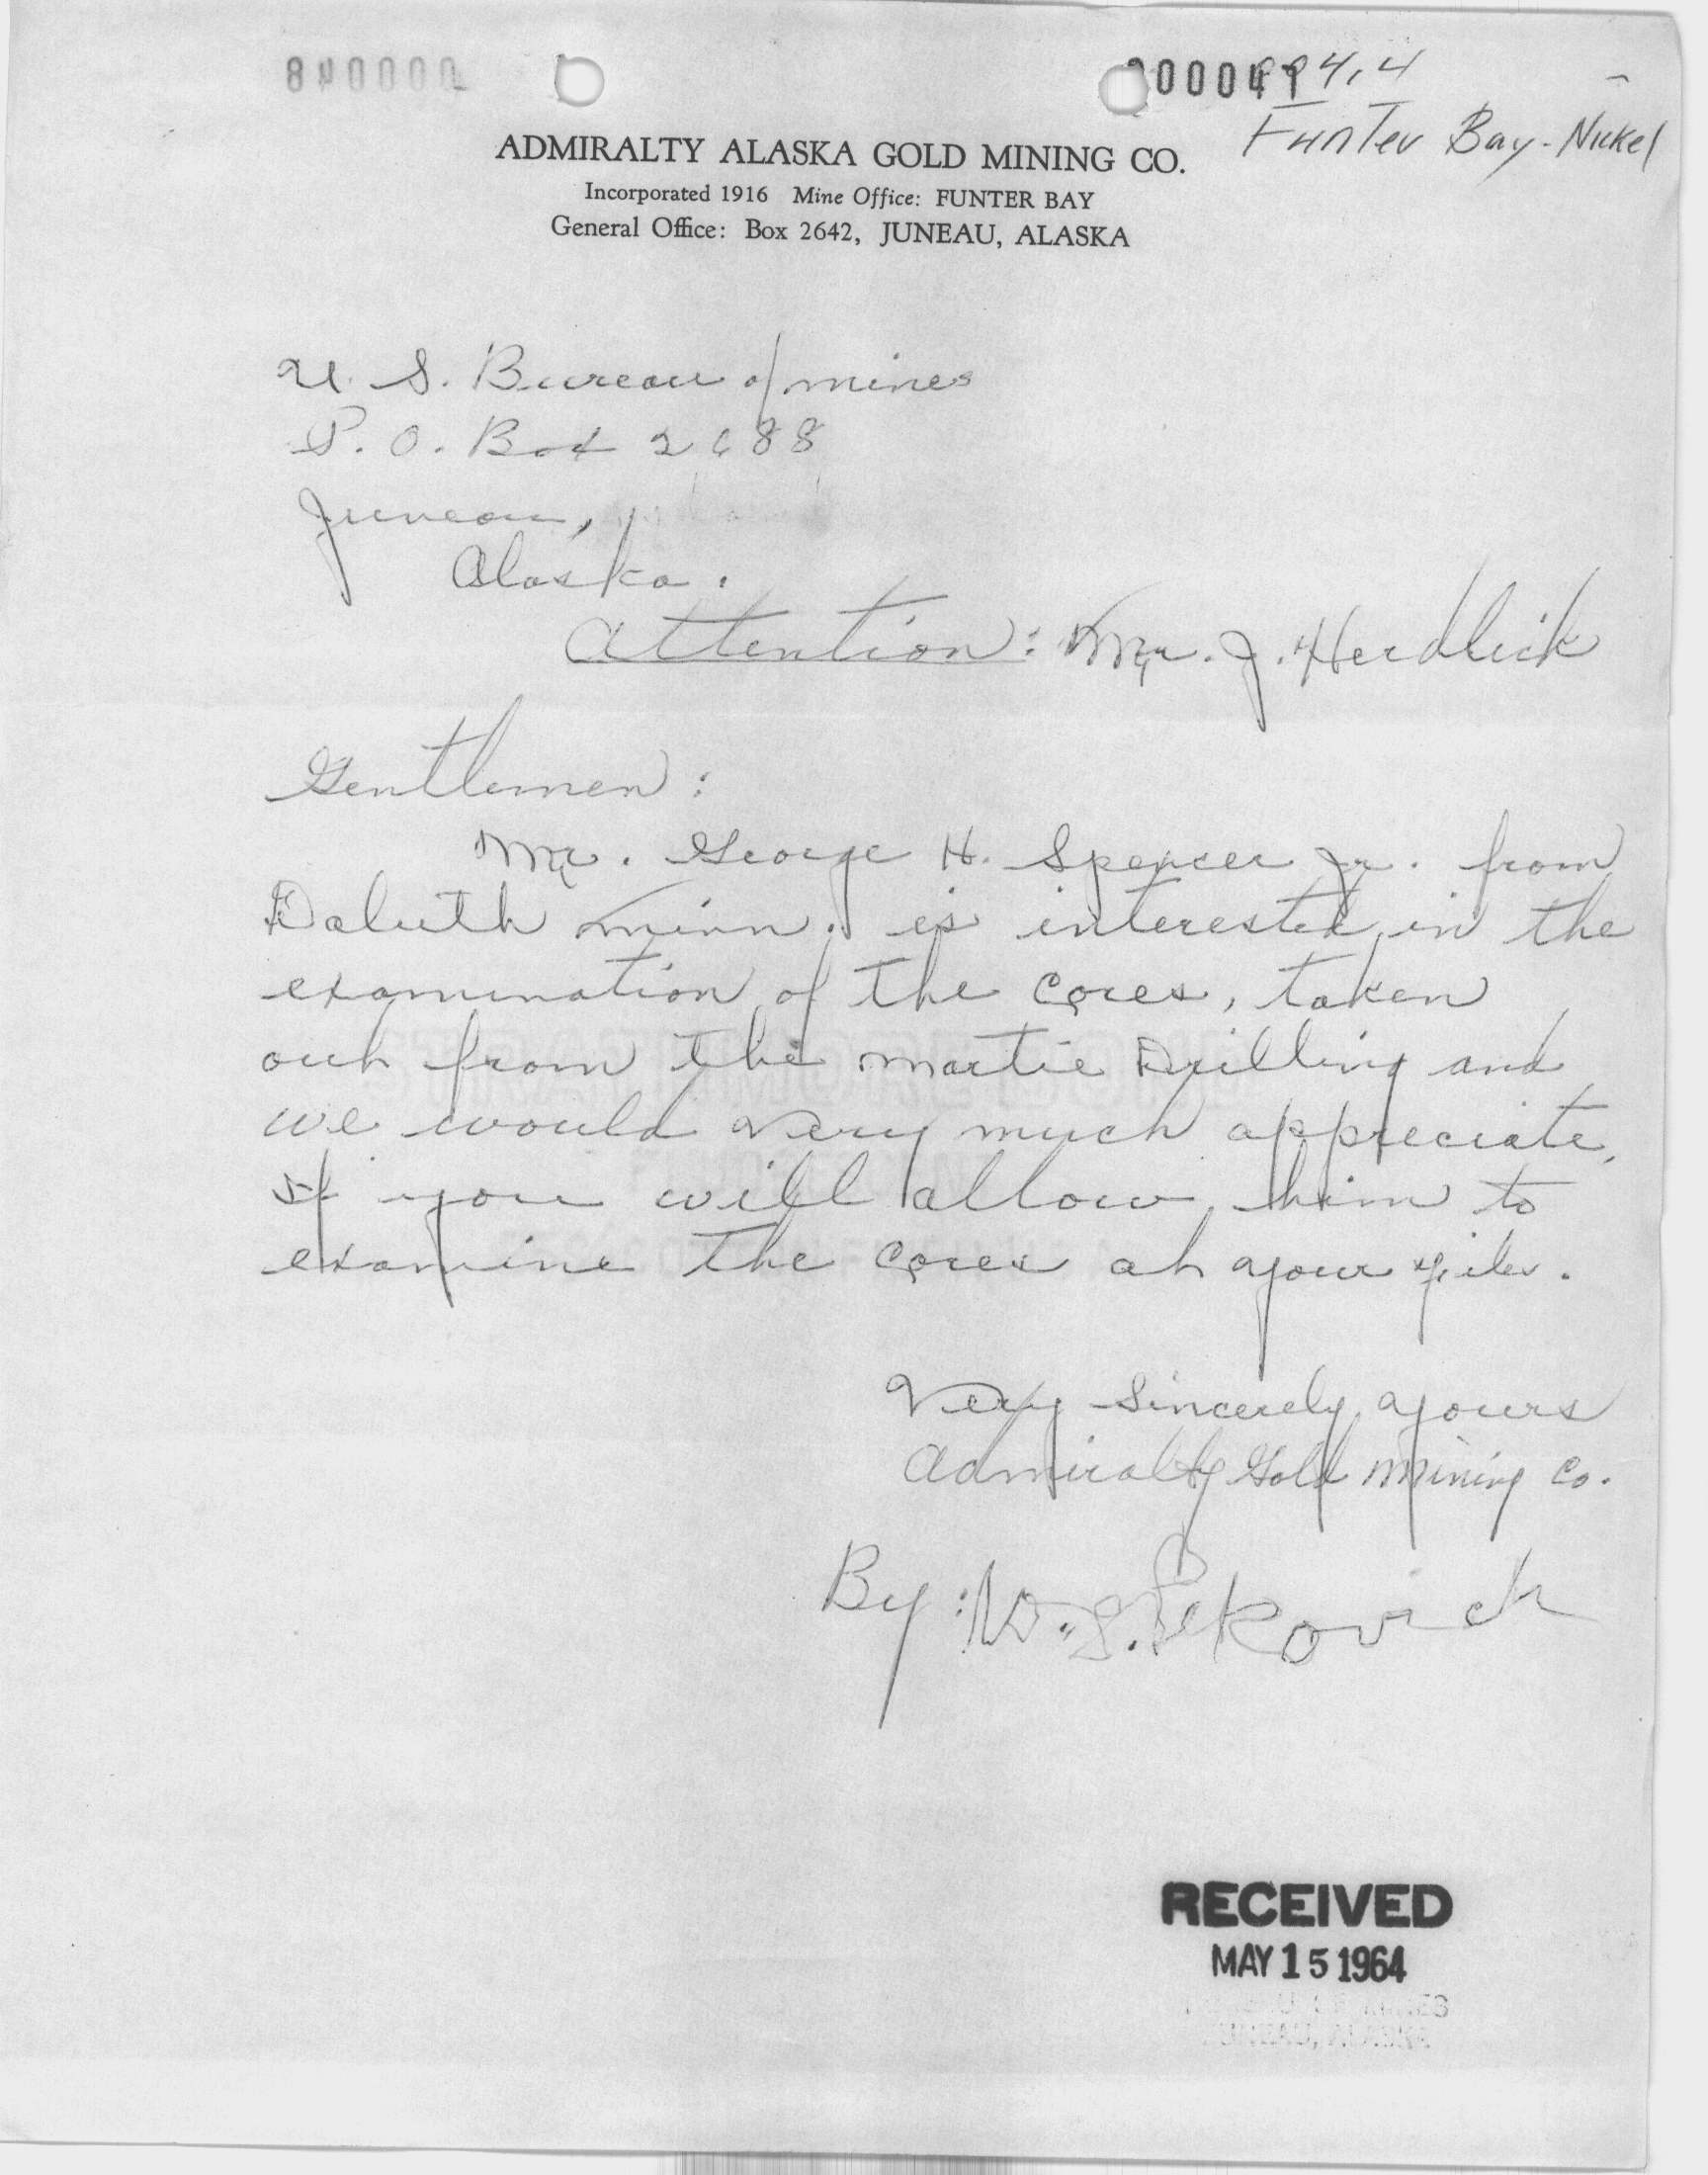 000041 994,4
Funter Bay - Nickel
ADMIRALTY ALASKA GOLD MINING CO.
Incorporated 1916 Mine Office: FUNTER BAY
General Office: Box 2642, JUNEAU, ALASKA
U. S. Bureau of mines
P. O. Box 2688
Juneau,
Alaska.
Attention: Mr. J. Herdlick
Gentlemen:
Mr. George H. Spencer Jr. from
Duluth Minn. is interested in the
examination of the cores, taken
out from the Martie Drilling and
we would very much appreciate,
if you will allow him to
examine the cores at your
Very Sincerely yours
Admiralty Gold Mining Co.
By: W. S. Pekovich
RECEIVED
MAY 15 1964